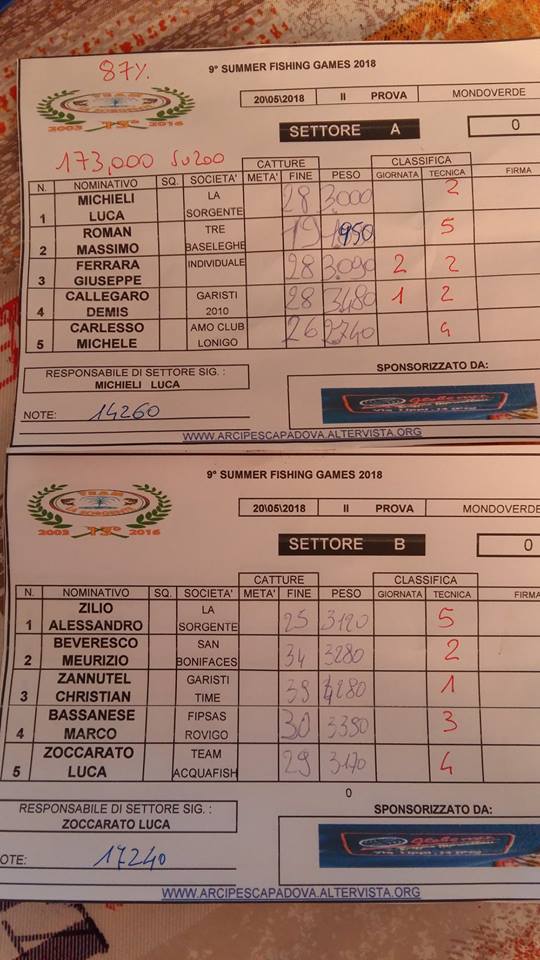 87%
9° SUMMER FISHING GAMES 2018
TEAM
2003 15° 2016
20\05\2018 II PROVA MONDOVERDE
SETTORE A 0
173,000 SU 200
CATTURE CLASSIFICA
N. NOMINATIVO SQ. SOCIETA' META' FINE PESO GIORNATA TECNICA FIRMA
1 MICHIELI LUCA LA SORGENTE 28 3000 2
2 ROMAN MASSIMO TRE BASELEGHE 19 1950 5
3 FERRARA GIUSEPPE INDIVIDUALE 28 3090 2 2
4 CALLEGARO DEMIS GARISTI 2010 28 3480 1 2
5 CARLESSO MICHELE AMO CLUB LONIGO 26 2740 4
RESPONSABILE DI SETTORE SIG. :
MICHIELI LUCA
SPONSORIZZATO DA:
NOTE: 14260
WWW.ARCIPESCAPADOVA.ALTERVISTA.ORG
9° SUMMER FISHING GAMES 2018
TEAM
2003 15° 2016
20\05\2018 II PROVA MONDOVERDE
SETTORE B 0
CATTURE CLASSIFICA
N. NOMINATIVO SQ. SOCIETA' META' FINE PESO GIORNATA TECNICA FIRMA
1 ZILIO ALESSANDRO LA SORGENTE 25 3120 5
2 BEVERESCO MEURIZIO SAN BONIFACES 34 3280 2
3 ZANNUTEL CHRISTIAN GARISTI TIME 39 4280 1
4 BASSANESE MARCO FIPSAS ROVIGO 30 3390 3
5 ZOCCARATO LUCA TEAM ACQUAFISH 29 3170 4
0
RESPONSABILE DI SETTORE SIG. :
ZOCCARATO LUCA
SPONSORIZZATO DA:
NOTE: 17240
WWW.ARCIPESCAPADOVA.ALTERVISTA.ORG